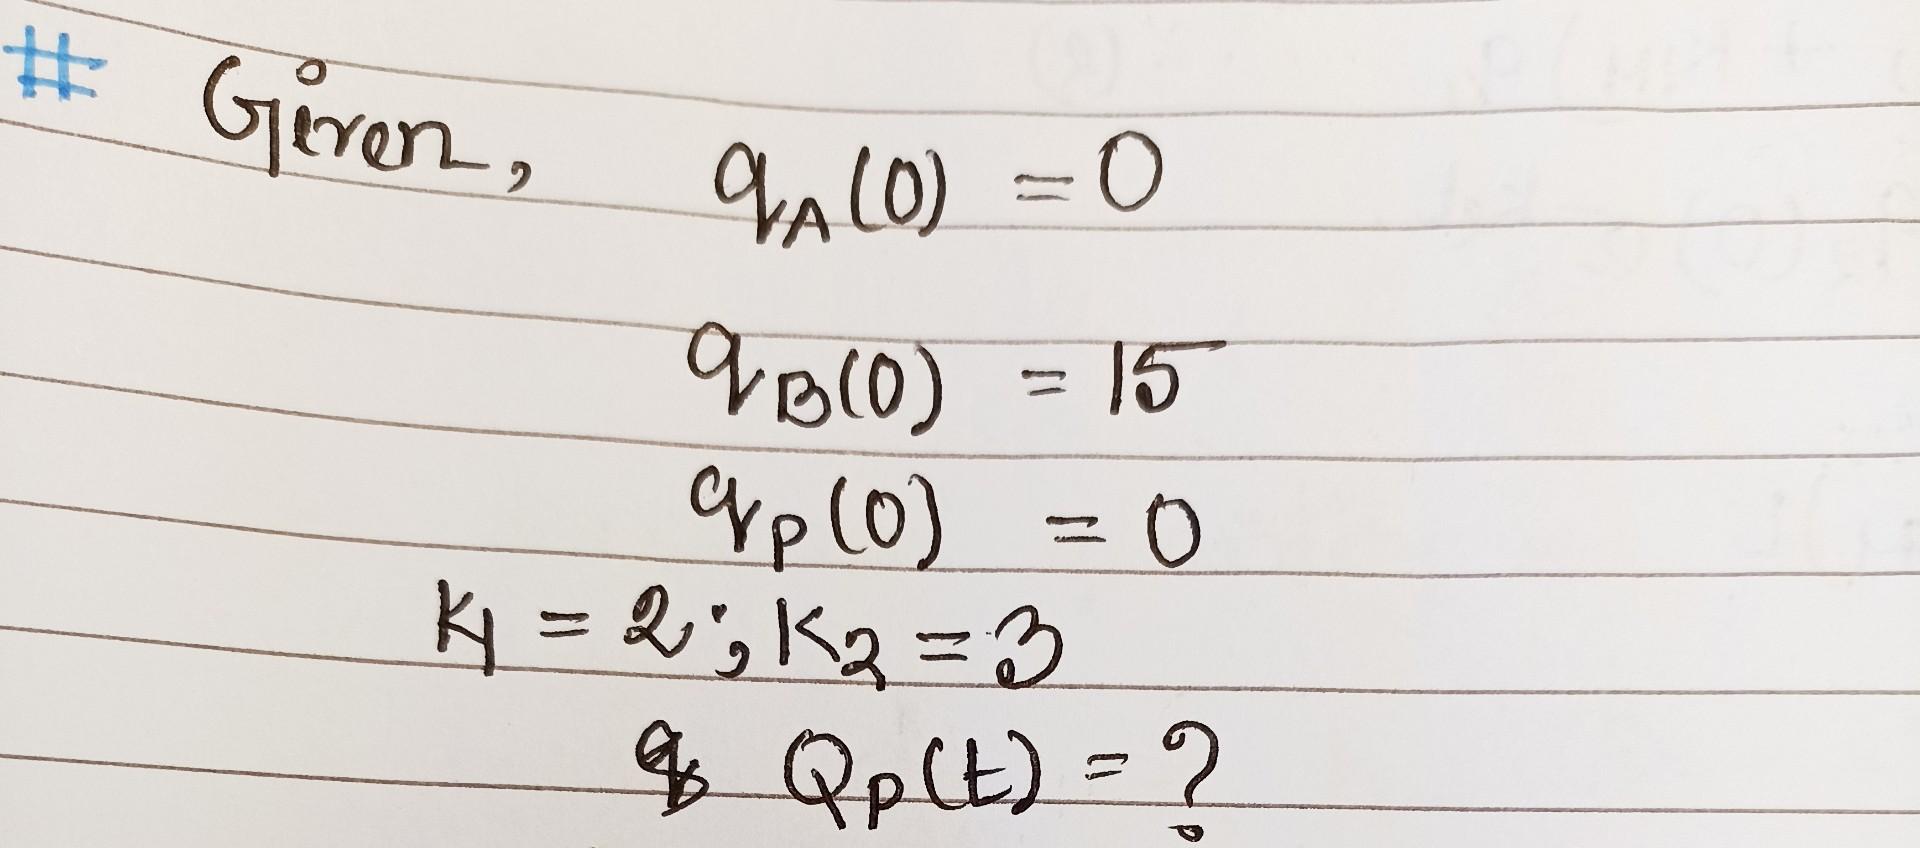 # Given, qA(0) = 0
qB(0) = 15
qP(0) = 0
K1 = 2 ; K2 = 3
QP(t) = ?